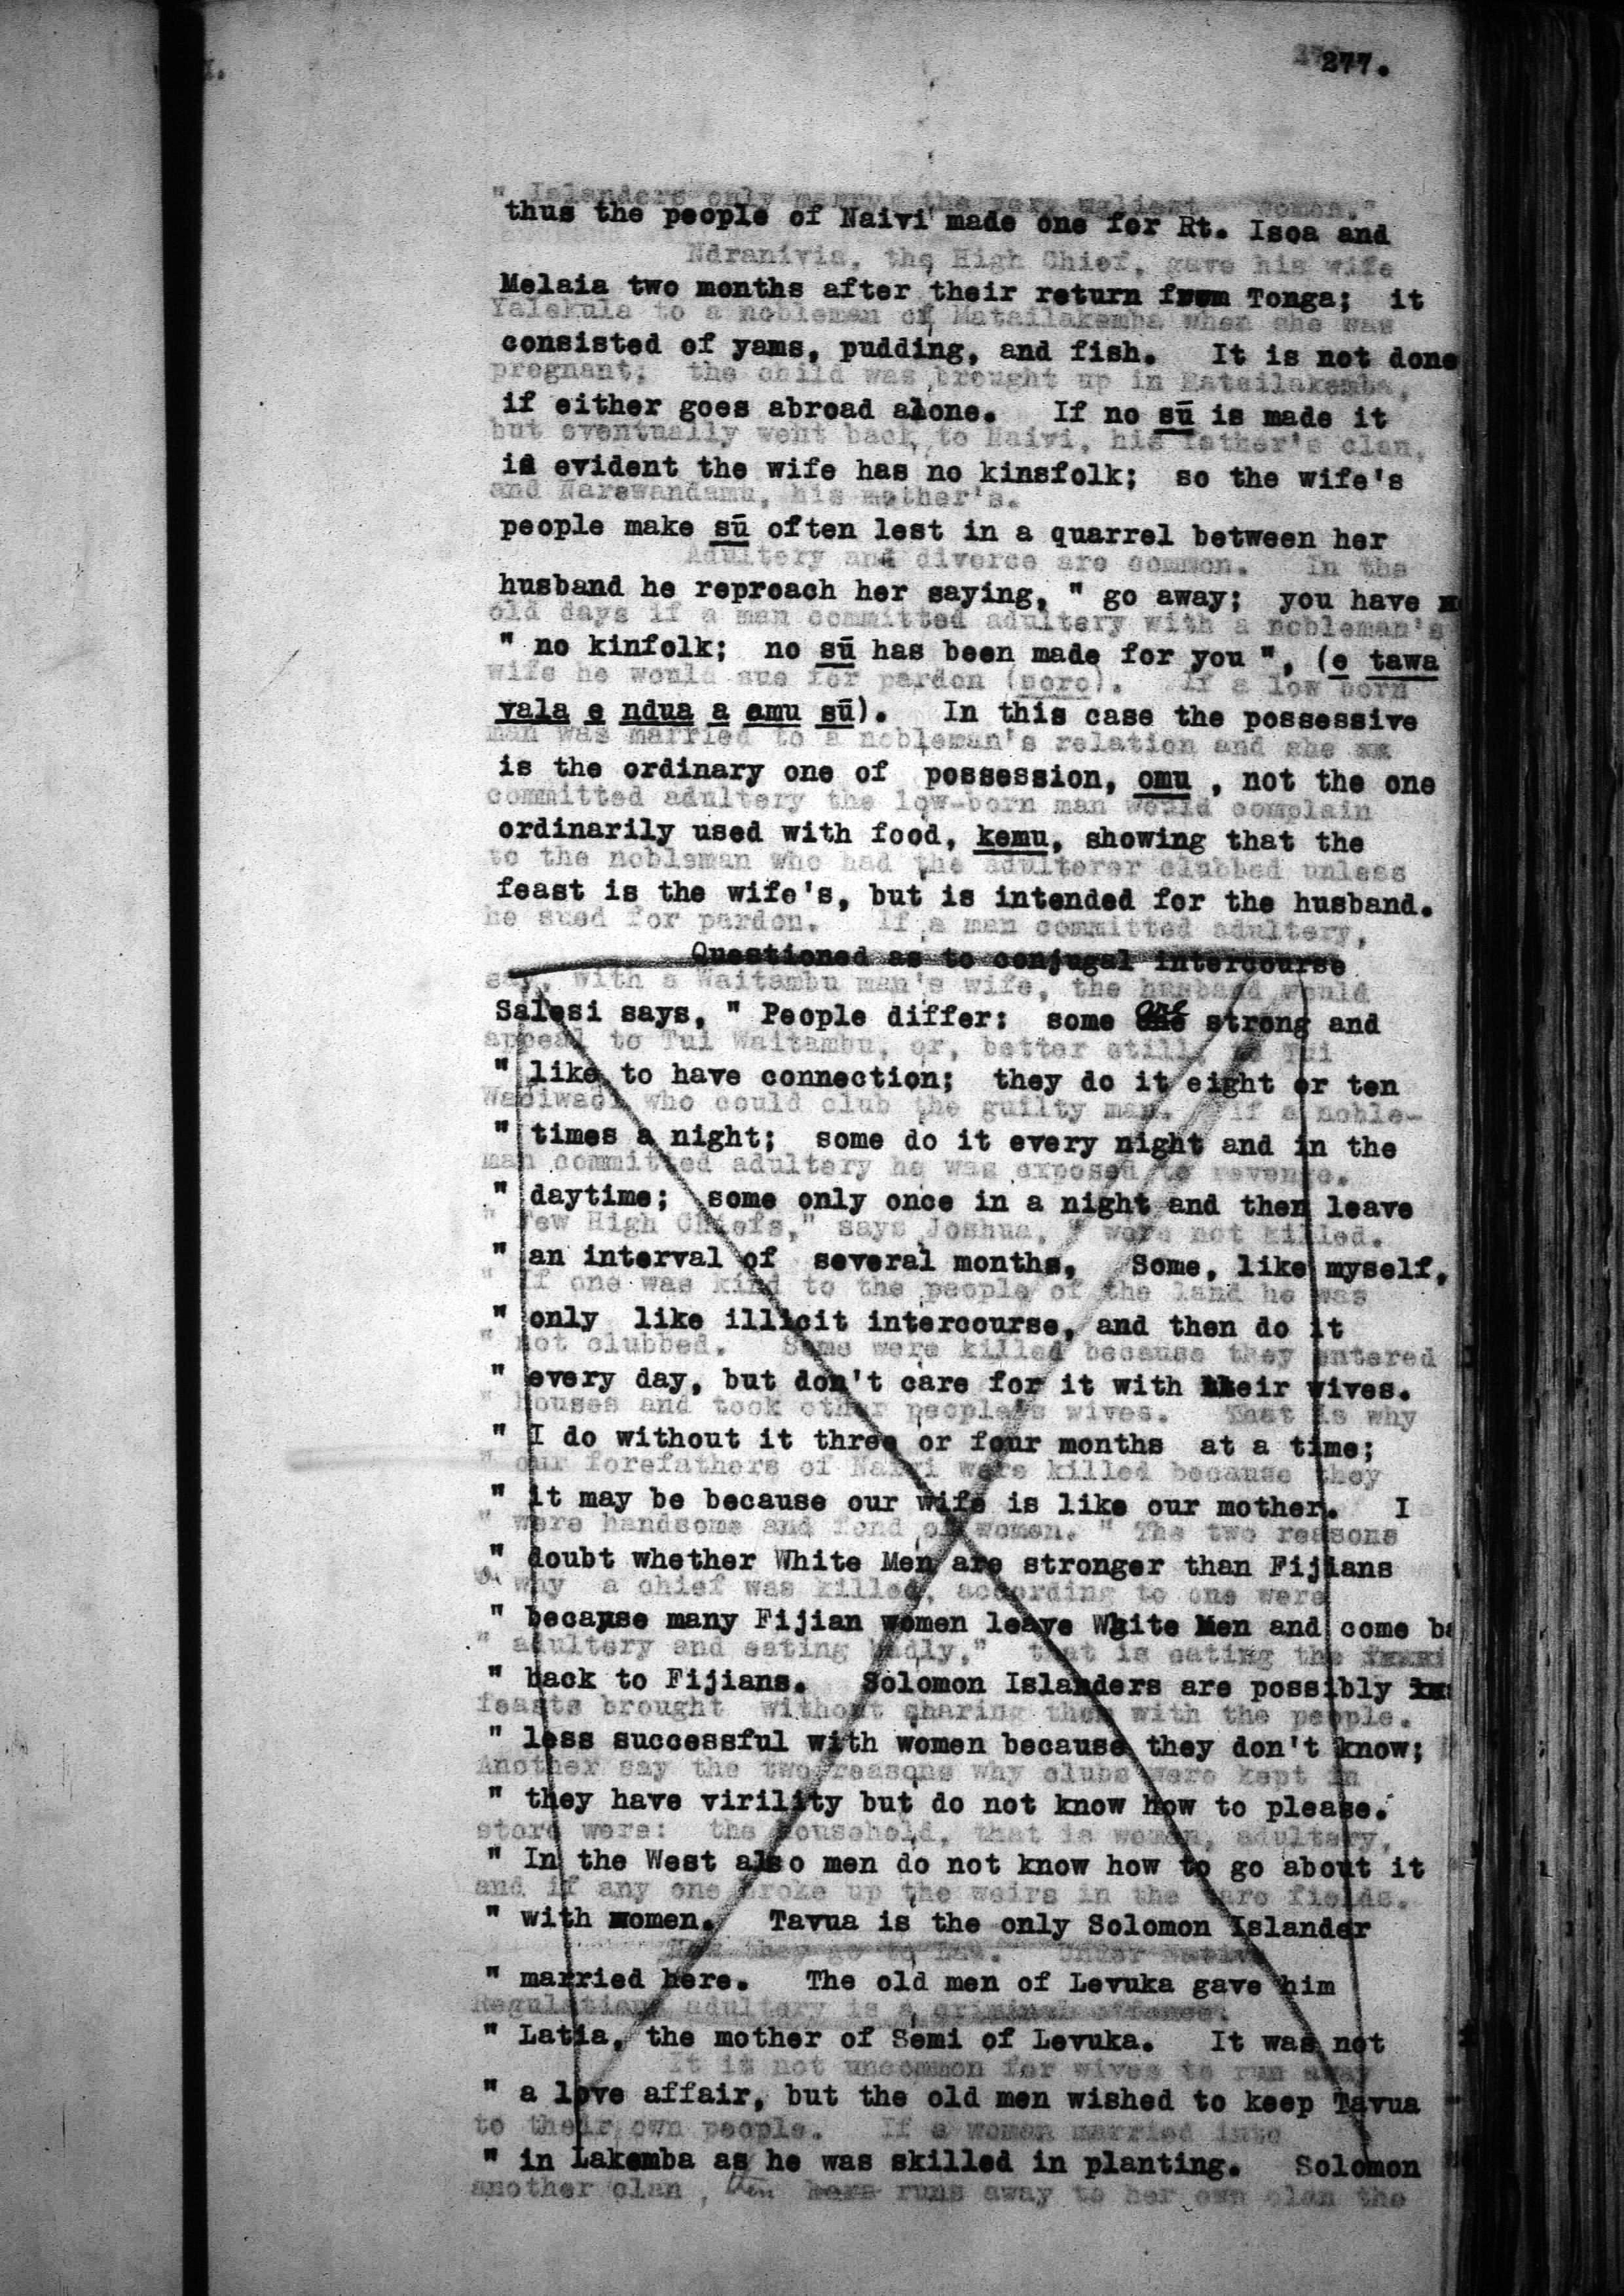 277.
thus the people of Naivi made one for Rt. Isoa and
Melaia two months after their return from Tonga; it
consisted of yams, pudding, and fish. It is not done
if either goes abroad alone. If no sū is made it
is evident the wife has no kinsfolk; so the wife's
people make sū often lest in a quarrel between her
husband he reproach her saying, " go away; you have
" no kinfolk; no sū has been made for you ", (e tawa
vala e ndua a emu sū). In this case the possessive
is the ordinary one of possession, omu , not the one
ordinarily used with food, kemu, showing that the
feast is the wife's, but is intended for the husband.
Questioned as to conjugal intercourse
Salesi says, " People differ: some are strong and
" like to have connection; they do it eight or ten
" times a night; some do it every night and in the
" daytime; some only once in a night and then leave
" an interval of several months, Some, like myself,
" only like illicit intercourse, and then do it
" every day, but don't care for it with their wives.
" I do without it three or four months at a time;
" it may be because our wife is like our mother. I
" doubt whether White Men are stronger than Fijians
" because many Fijian women leave White Men and come ba
" back to Fijians. Solomon Islanders are possibly
" less successful with women because they don't know;
" they have virility but do not know how to please.
" In the West also men do not know how to go about it
" with women. Tavua is the only Solomon Islander
" married here. The old men of Levuka gave him
" Latia, the mother of Semi of Levuka. It was not
" a love affair, but the old men wished to keep Tavua
" in Lakemba as he was skilled in planting. Solomon
" Islanders only marry the very ugliest women."
Ndranivia, the High Chief, gave his wife
Yalekula to a nobleman of Matailakemba when she was
pregnant; the child was brought up in Matailakemba,
but eventually went back to Naivi, his father's clan,
and Narewandamu, his mother's.
Adultery and divorce are common. In the
old days if a man committed adultery with a nobleman's
wife he would sue for pardon (soro). If a low born
man was married to a nobleman's relation and she
committed adultery the low-born man would complain
to the nobleman who had the adulterer clubbed unless
he sued for pardon. If a man committed adultery,
say, with a Waitambu man's wife, the husband would
appeal to Tui Waitambu, or, better still, to Tui
who could club the guilty man. If a noble-
man committed adultery he was exposed to revenge.
" Few High Chiefs," says Joshua, " were not killed.
" If one was kind to the people of the land he was
" not clubbed. Some were killed because they entered
" houses and took other people's wives. That is why
" our forefathers of Naivi were killed because they
" were handsome and fond of women. " The two reasons
why a chief was killed, according to one were
" adultery and eating badly," that is eating the
feasts brought without sharing them with the people.
Another say the two reasons why clubs were kept in
store were: the household, that is women, adultery,
and if any one broke up the weirs in the taro fields.
Now they go to law. Under
Regulations adultery is a criminal offence.
It is not uncommon for wives to run away
to their own people. If a woman married into
another clan, then runs away to her own clan the